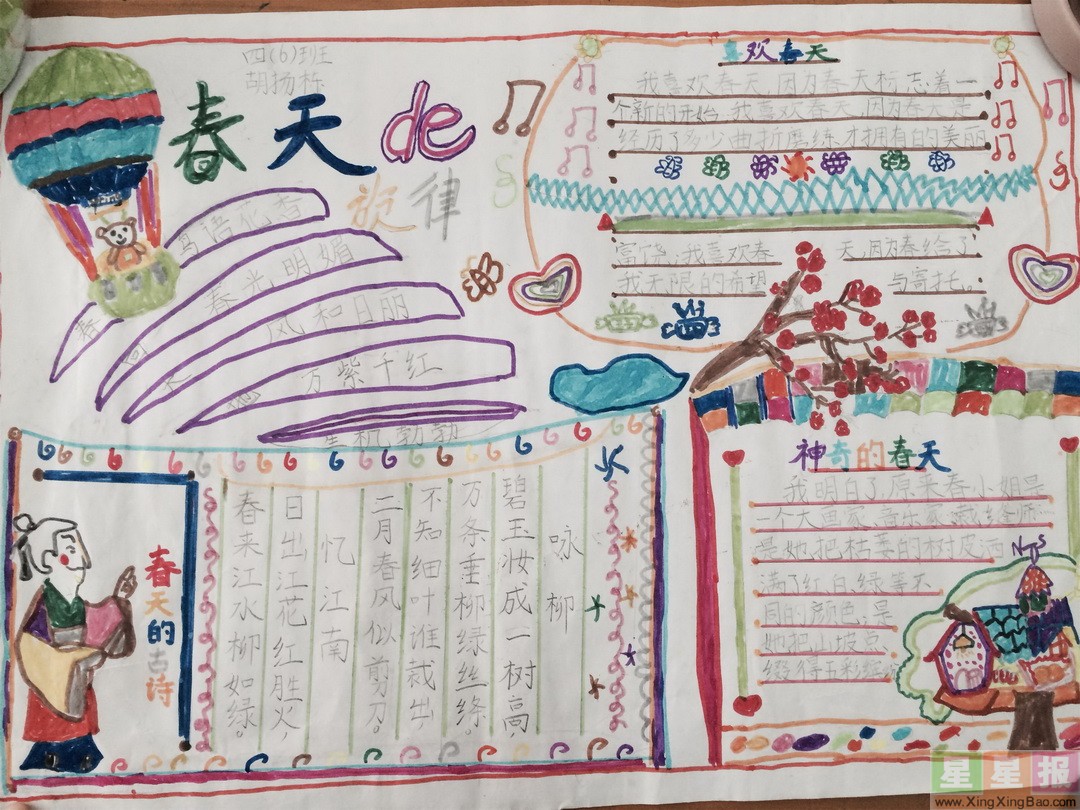 四(6)班
胡扬栋
春天de
旋律
鸟语花香
春光明媚
风和日丽
万紫千红
生机勃勃
喜欢春天
我喜欢春天,因为春天标志着一
个新的开始。我喜欢春天,因为春天是
经历了多少曲折磨练才拥有的美丽
富饶;我喜欢春天,因为春给了
我无限的希望与寄托。
春天的古诗
咏柳
碧玉妆成一树高,
万条垂柳绿丝绦。
不知细叶谁裁出,
二月春风似剪刀。
忆江南
日出江花红胜火,
春来江水柳如绿。
神奇的春天
我明白了,原来春小姐是
一个大画家、音乐家、裁缝师……
是她把枯萎的树皮洒
满了红、白、绿等不
同的颜色;是
她把山坡点
缀得五彩缤
星星报
www.XingXingBao.com